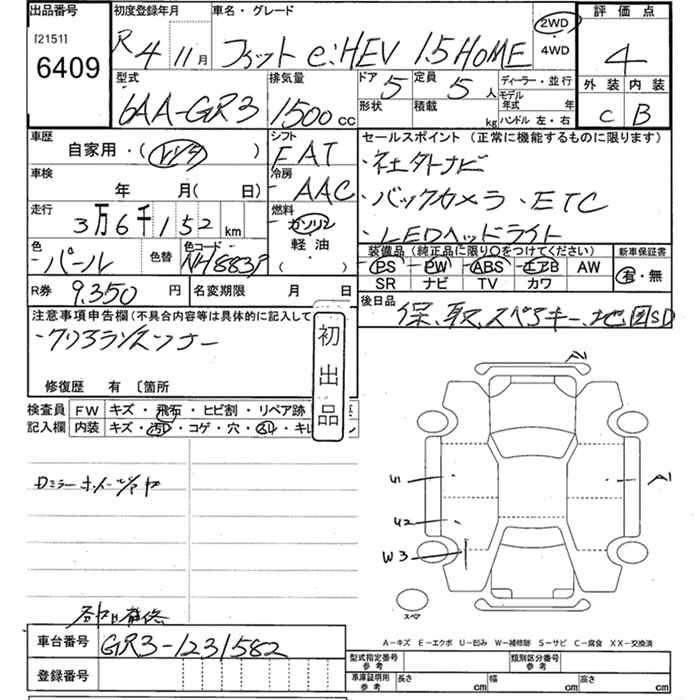 出品番号 初度登録年月 車名・グレード 評価点
[2151] R4 11月 フィット e:HEV 1.5 HOME 2WD 4WD 4
6409
型式 排気量 ドア 定員 ディーラー・並行 外装 内装
6AA-GR3 1500cc 5 5人 モデル年式 年 C B
形状 積載 kg ハンドル 左・右
車歴 シフト セールスポイント(正常に機能するものに限ります)
自家用・(レンタ) FAT ・社外ナビ
車検 冷房 ・バックカメラ・ETC
年 月( 日) AAC ・LEDヘッドライト
走行 燃料
3万6千152km ガソリン
軽油
( )
色 色替 色コード 装備品(純正品に限り○をつけてください) 新車保証書
パール NH883P PS PW ABS エアB AW 有・無
SR ナビ TV カワ
R券 9,350円 名変期限 月 日 後日品
保、取、スペアキー、地図SD
注意事項申告欄(不具合内容等は具体的に記入して
・クリアランスソナー
初出品
修復歴 有 〔箇所
検査員 FW キズ・飛石・ヒビ割・リペア跡
記入欄 内装 キズ・汚れ・コゲ・穴・スレ・キレ
A2
U1 A1
Dミラーカバーキズ
U2
W3
スペア
A-キズ E-エクボ U-凹み W-補修跡 S-サビ C-腐食 XX-交換済
車台番号 GR3-1231582
型式指定番号 参考 類別区分番号 参考
登録番号 車庫証明用 参考 長さ cm 幅 cm 高さ cm